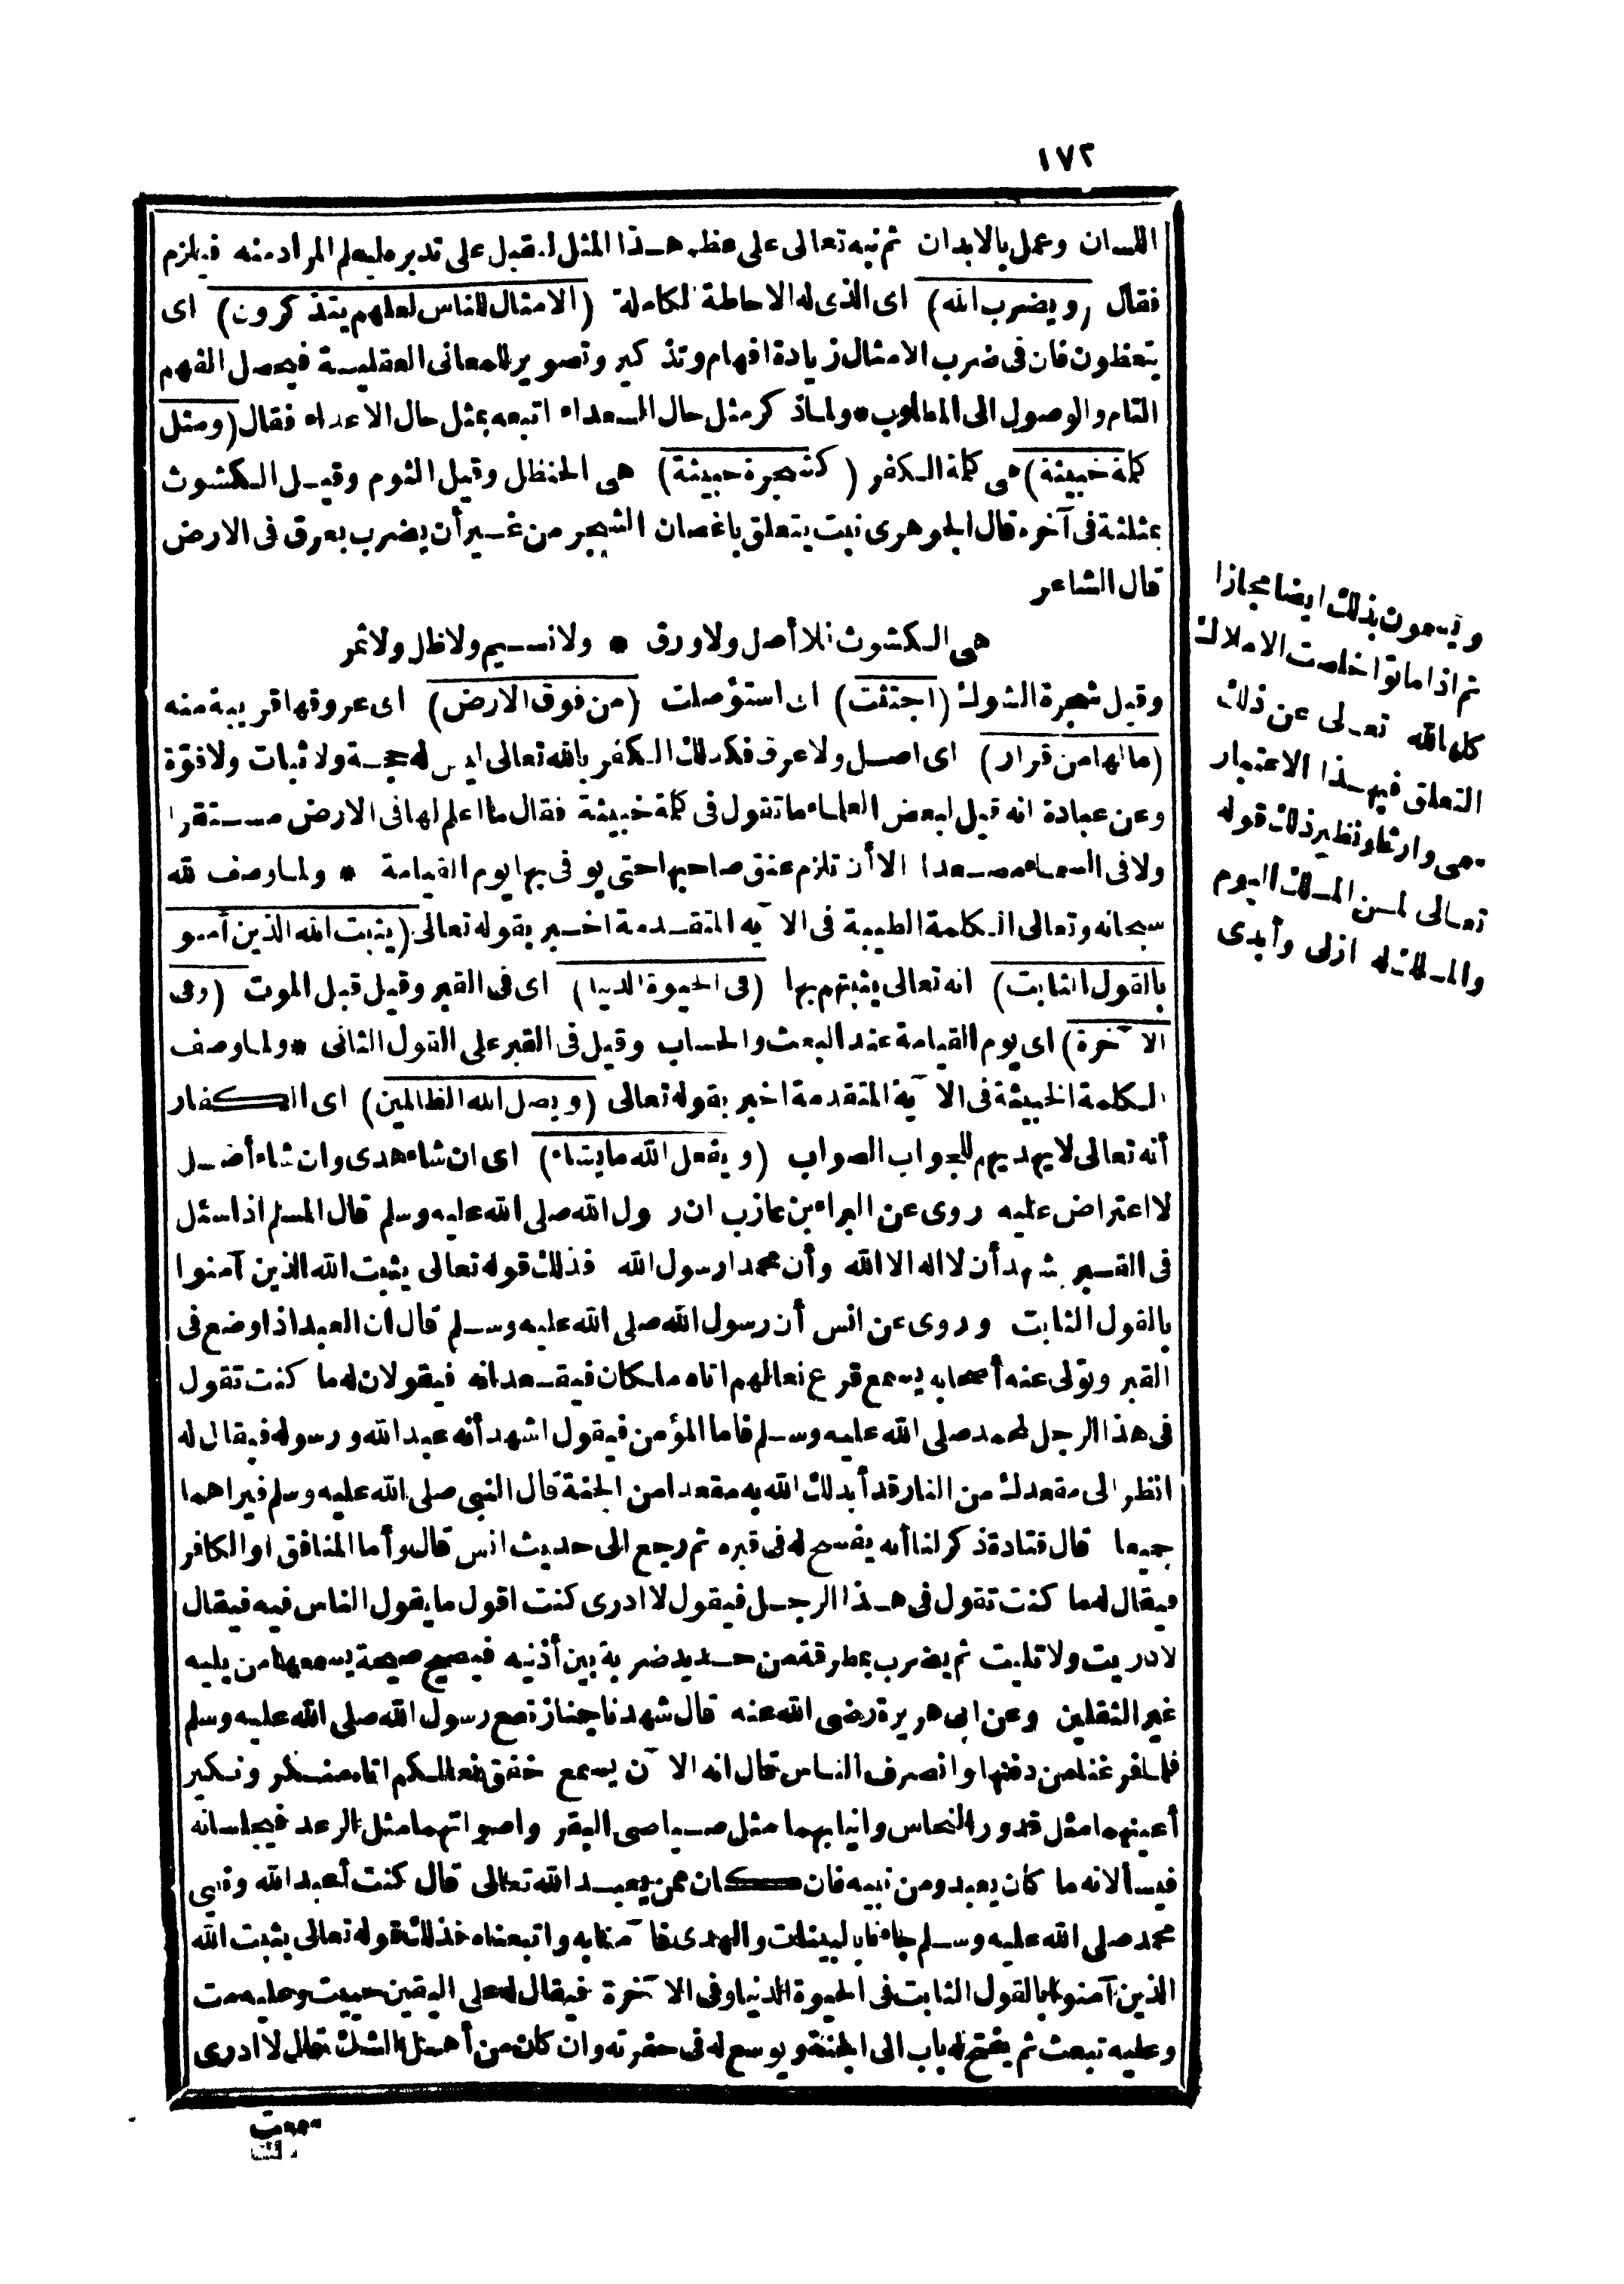 ١٧٢
اللسان وعمل بالابدان ثم نبه تعالى على عظم هذا المثل ليقبل على تدبره ليعلم المراد منه فيلزم
فقال (ويضرب الله) اى الذى له الاحاطة الكاملة (الامثال للناس لعلهم يتذكرون) اى
يتعظون فان فى ضرب الامثال زيادة افهام وتذكير وتصوير للمعانى العقلية فيحصل الفهم
التام والوصول الى المطلوب * ولما ذكر مثل حال السعداء اتبعه بمثل حال الاعداء فقال (ومثل
كلمة خبيثة) هى كلمة الكفر (كشجرة خبيثة) هى الحنظل وقيل الثوم وقيل الكشوث
بمثلثة فى آخره قال الجوهرى نبت يتعلق باغصان الشجر من غير أن يضرب بعرق فى الارض
قال الشاعر
هى الكشوث فلا أصل ولا ورق * ولا نسيم ولا ظل ولا ثمر
وقيل شجرة الشوك (اجتثت) اى استؤصلت (من فوق الارض) اى عروقها قريبة منه
(ما لها من قرار) اى اصل ولا عرق فكذلك الكفر بالله تعالى ليس له حجة ولا ثبات ولا قوّة
وعن عبادة انه قيل لبعض العلماء ما تقول فى كلمة خبيثة فقال ما اعلم لها فى الارض مستقرا
ولا فى السماء مصعدا الا أن تلزم عنق صاحبها حتى يوفى بها يوم القيامة * ولما وصف الله
سبحانه وتعالى الكلمة الطيبة فى الآية المتقدمة اخبر بقوله تعالى (يثبت الله الذين آمنو
بالقول الثابت) انه تعالى يثبتهم بها (فى الحيوة الدنيا) اى فى القبر وقيل قبل الموت (وفى
الآخرة) اى يوم القيامة عند البعث والحساب وقيل فى القبر على القول الثانى * ولما وصف
الكلمة الخبيثة فى الآية المتقدمة اخبر بقوله تعالى (ويضل الله الظالمين) اى الكفار
أنه تعالى لا يهديهم للجواب الصواب (ويفعل الله ما يشاء) اى ان شاء هدى وان شاء أضل
لا اعتراض عليه روى عن البراء بن عازب ان رسول الله صلى الله عليه وسلم قال المسلم اذا سئل
فى القبر يشهد أن لا اله الا الله وأن محمدا رسول الله فذلك قوله تعالى يثبت الله الذين آمنوا
بالقول الثابت وروى عن انس أن رسول الله صلى الله عليه وسلم قال ان العبد اذا وضع فى
القبر وتولى عنه أصحابه يسمع قرع نعالهم اتاه ملكان فيقعدانه فيقولان له ما كنت تقول
فى هذا الرجل لمحمد صلى الله عليه وسلم فاما المؤمن فيقول اشهد أنه عبد الله ورسوله فيقال له
انظر الى مقعدك من النار قد أبدلك الله به مقعدا من الجنة قال النبى صلى الله عليه وسلم فيراهما
جميعا قال قتادة ذكر لنا أنه يفسح له فى قبره ثم رجع الى حديث انس قال وأما المنافق او الكافر
فيقال لهما كنت تقول فى هذا الرجل فيقول لا ادرى كنت اقول ما يقول الناس فيه فيقال
لا دريت ولا تليت ثم يضرب بمطرقة من حديد ضربة بين أذنيه فيصيح صيحة يسمعها من يليه
غير الثقلين وعن ابى هريرة رضى الله عنه قال شهدنا جنازة مع رسول الله صلى الله عليه وسلم
فلما فرغنا من دفنها وانصرف الناس قال انه الآن يسمع خفق نعالكم اتاه منكر ونكير
أعينهما مثل قدور النحاس وانيابهما مثل صياصى البقر واصواتهما مثل الرعد فيجلسانه
فيسألانه ما كان يعبد ومن نبيه فان كان ممن يعبد الله تعالى قال كنت أعبد الله ونبي
محمد صلى الله عليه وسلم جاءنا بالبينات والهدى فآمنا به واتبعناه فذلك قوله تعالى يثبت الله
الذين آمنوا بالقول الثابت فى الحيوة الدنيا وفى الآخرة فيقال له على اليقين حييت وعليه مت
وعليه تبعث ثم يفتح له باب الى الجنة ويوسع له فى حفرته وان كان من أهل الشك قال لا ادرى
ويسمون بذلك ايضا مجازا
ثم اذا ماتوا خلصت الاملاك
كلها لله تعالى عن ذلك
التعلق فبهذا الاعتبار
سمى وارثا ونظير ذلك قوله
تعالى لمن الملك اليوم
والملك له ازلى وأبدى
سمعت